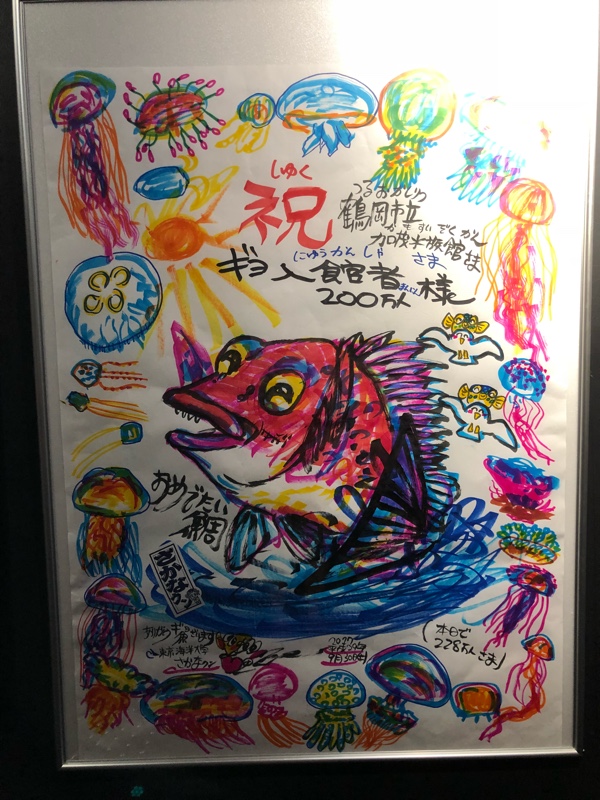 しゅく
祝
つるおかしりつ
鶴岡市立
かもすいぞくかん
加茂水族館さま
にゅうかんしゃ さま
ギョ入館者様
200万人
まんにん
おめでたい
鯛
さかなクン
ありがとうギョざいます
東京海洋大学
さかなクン
9月30日
(本日で
228万人さま)